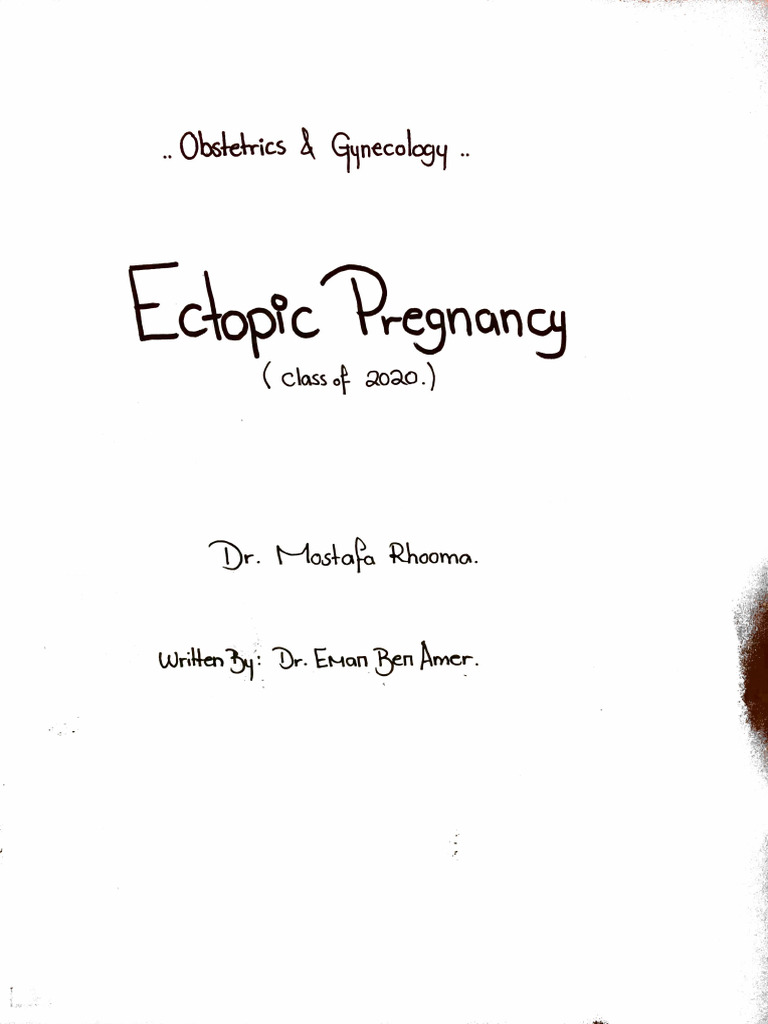 .. Obstetrics & Gynecology ..
Ectopic Pregnancy
(class of 2020.)
Dr. Mostafa Rhooma.
Written By: Dr. Eman Ben Amer.